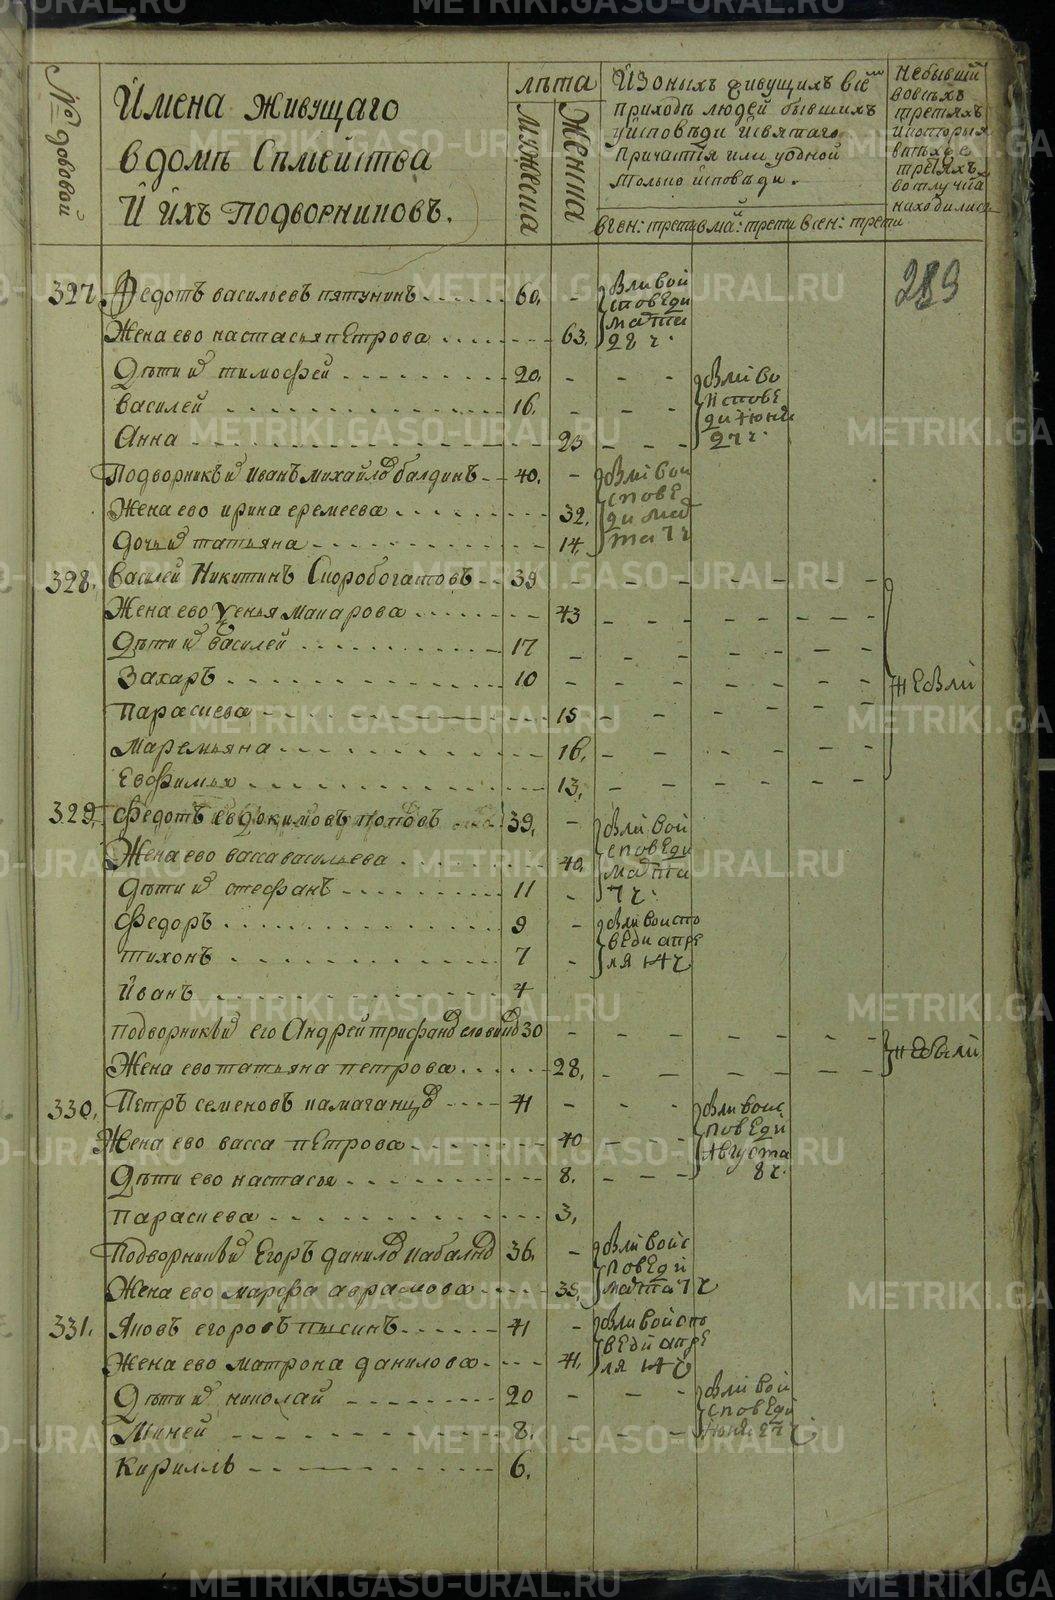 № дововой
Имена живущаго
в доме Семейства
И ихъ подворниковъ.
лѣта
мужеска
Женска
Изоныхъ живущихъ все
прихода людей бывшихъ
уисповѣди исвятаго
Причастия или уодной
Только исповѣди.
вген: трети вма: трети всен: трети
Небывши
вовсѣхъ
третяхъ
икоторыя
втѣхже
третяхъ
вотлучкѣ
находились
289
327. Федотъ васильевъ пятунинъ 60. -
были вой
споведи
марта
28 ч.
Жена ево настасья петрова 63.
Дѣти и тимофей 20.
василей 16.
были во
испове
ди июня
27 ч.
Анна 23
Подворникъ и Иванъ михайлов балдинъ 40.
были вои
спове
ди мар
та 7 ч
Жена ево ирина еремеева 32.
дочь и татьяна 14.
328. Василей Никитинъ Скоробогатовъ 39
Жена ево ксенья макарова 43
Дѣти и василей 17
Захаръ 10
небыли
Парасковя 15
Маремьяна 16.
Евфимья 13.
329. Федотъ евдокимовъ поповъ 39.
были вой
споведи
марта
7 ч.
Жена ево васса васильева 40.
Дѣти и стефанъ 11
Федоръ 9
были воиспо
веди апре
ля 14 ч
тихонъ 7
Иванъ 4
подворники его Андрей трифанов 30
небыли
Жена ево татьяна петрова 28.
330. Петръ семеновъ 41
были воис
поведи
Августа
8 ч.
Жена ево васса петрова 40
Дѣти ево настасья 8.
парасковя 3.
Подворники и Егоръ данилов 36.
были воис
поведи
марта 7 ч
Жена ево марфа аврамова 35.
331. Яковъ егоровъ пысинъ 41
были воиспо
веди апре
ля 14 ч
Жена ево матрона данилова 41.
Дѣти и николай 20
были вой
споведи
июня 27 ч
Миней 8.
Кириллъ 6.
METRIKI.GASO-URAL.RU